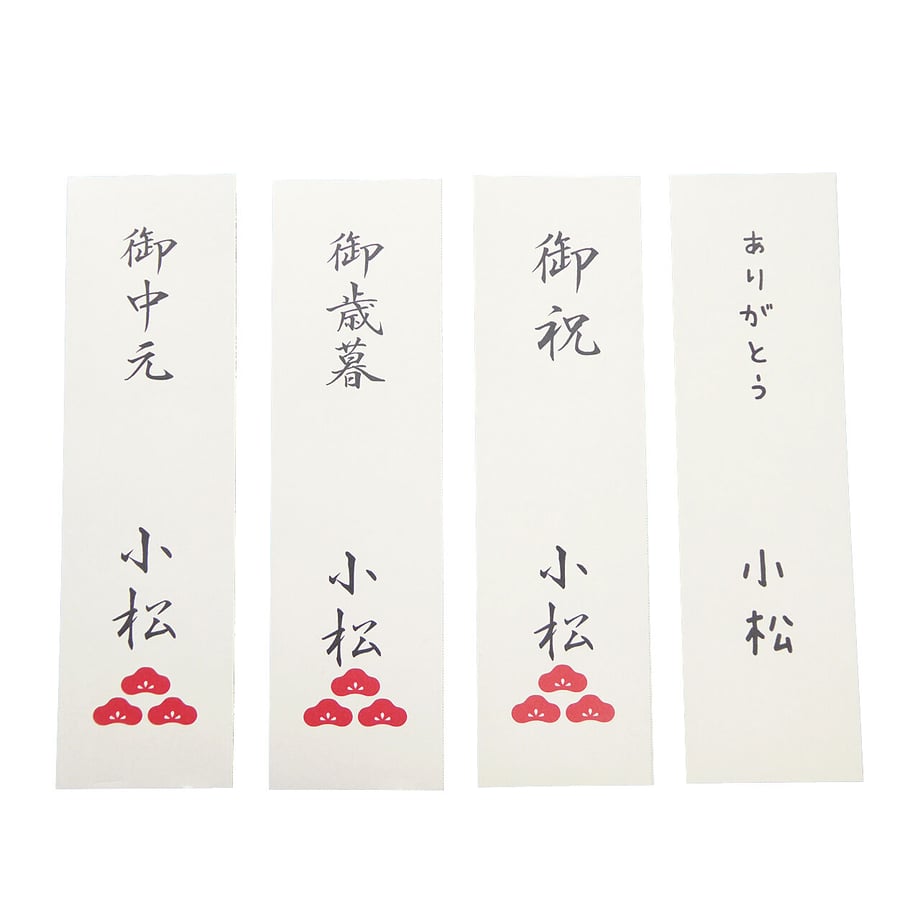 御中元
小松
御歳暮
小松
御祝
小松
ありがとう
小松